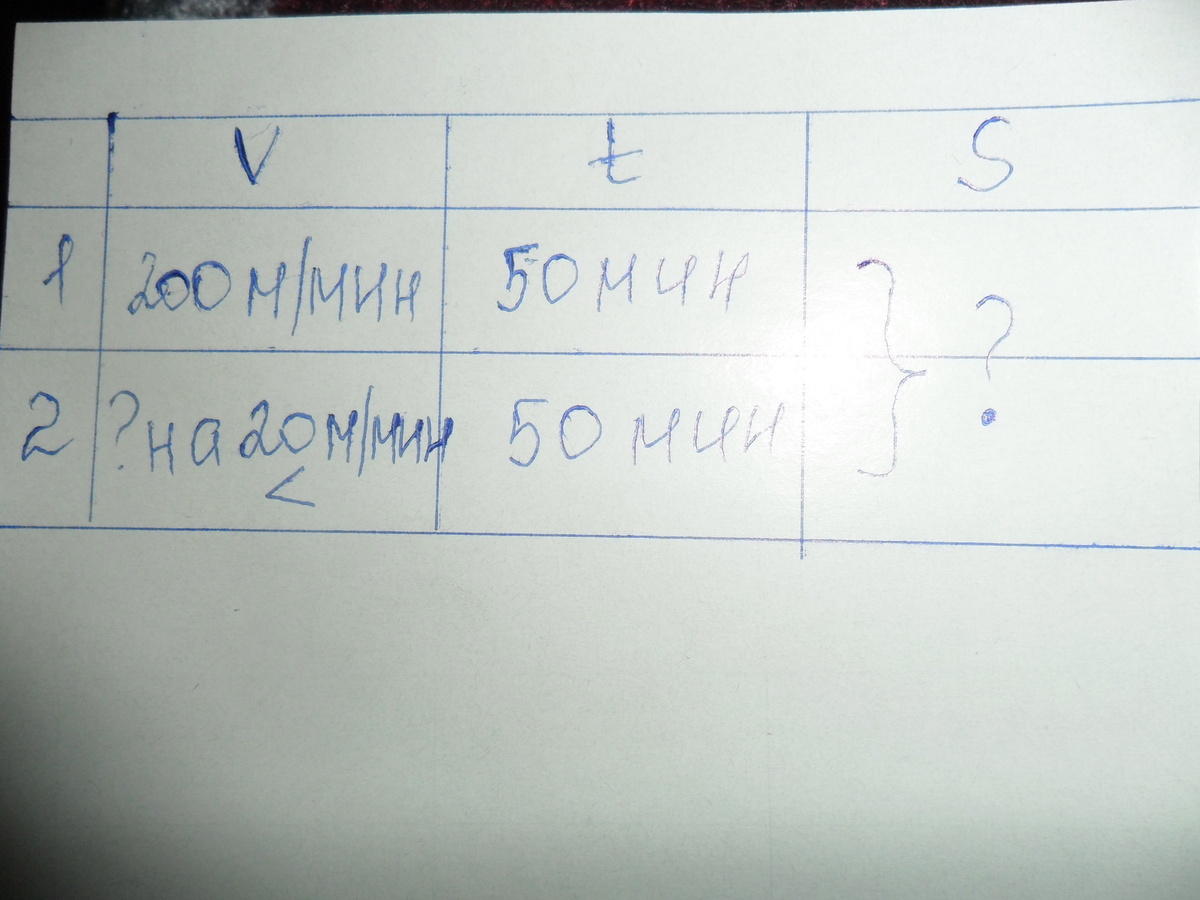 V t S
1 200 м/мин 50 мин
?
2 ? на 20 м/мин 50 мин
<